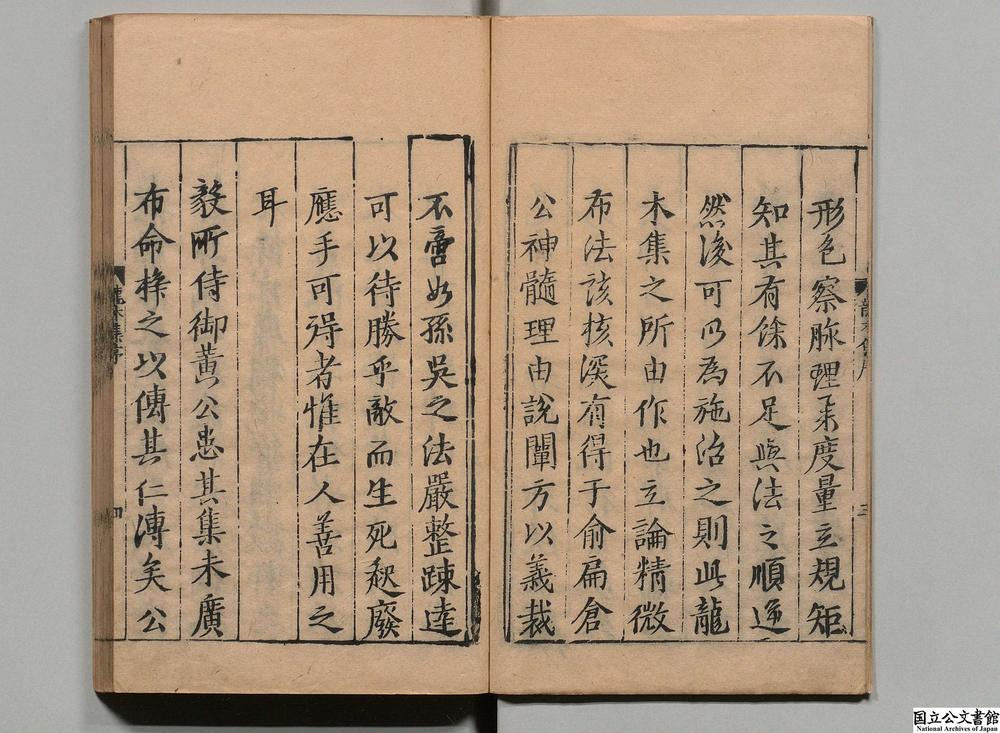 形色察脉理柔度量立規矩
知其有餘不足與法之順逆
然後可以為施治之則此龍
木集之所由作也立論精微
布法該核深有得于俞扁倉
公神髓理由說闡方以義裁
三
不啻如孫吳之法嚴整踈達
可以待勝乎敵而生死起廢
應手可得者惟在人善用之
耳
毅所侍御黃公患其集未廣
布命梓之以傳其仁溥矣公
龍木集序
四
国立公文書館
National Archives of Japan